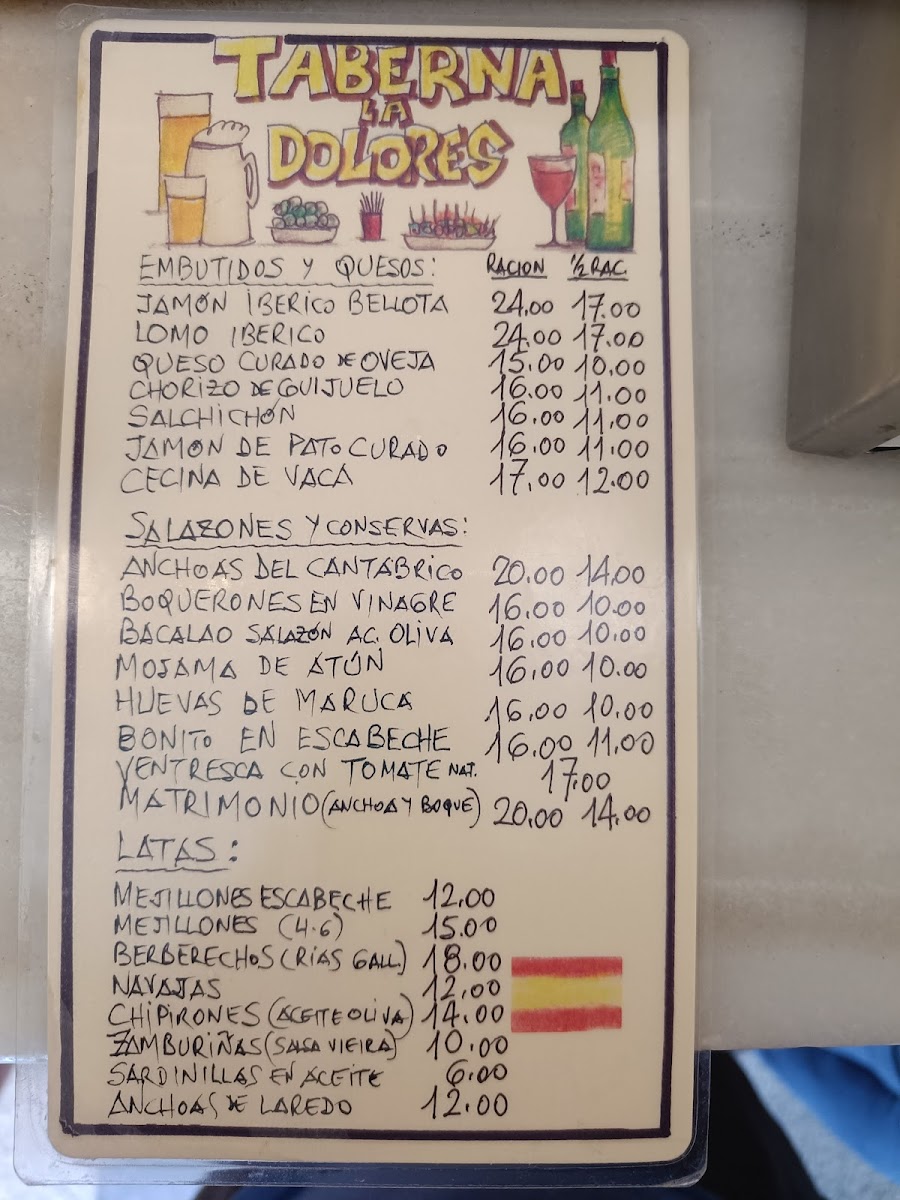 TABERNA
LA
DOLORES
EMBUTIDOS Y QUESOS: RACION 1/2 RAC.
JAMÓN IBERICO BELLOTA 24,00 17.00
LOMO IBERICO 24.00 17.00
QUESO CURADO DE OVEJA 15.00 10,00
CHORIZO DE GUIJUELO 16.00 11.00
SALCHICHÓN 16.00 11.00
JAMON DE PATO CURADO 16.00 11.00
CECINA DE VACA 17,00 12.00
SALAZONES Y CONSERVAS:
ANCHOAS DEL CANTÁBRICO 20.00 14.00
BOQUERONES EN VINAGRE 16.00 10.00
BACALAO SALAZÓN AC. OLIVA 16.00 10.00
MOJAMA DE ATÚN 16,00 10.00
HUEVAS DE MARUCA 16,00 10.00
BONITO EN ESCABECHE 16.00 11.00
VENTRESCA CON TOMATE NAT. 17.00
MATRIMONIO (ANCHOA Y BOQUE) 20,00 14.00
LATAS:
MEJILLONES ESCABECHE 12,00
MEJILLONES (4-6) 15.00
BERBERECHOS (RÍAS GALL.) 18.00
NAVAJAS 12,00
CHIPIRONES (ACEITE OLIVA) 14.00
ZAMBURIÑAS (SALSA VIEIRA) 10.00
SARDINILLAS EN ACEITE 6.00
ANCHOAS DE LAREDO 12.00